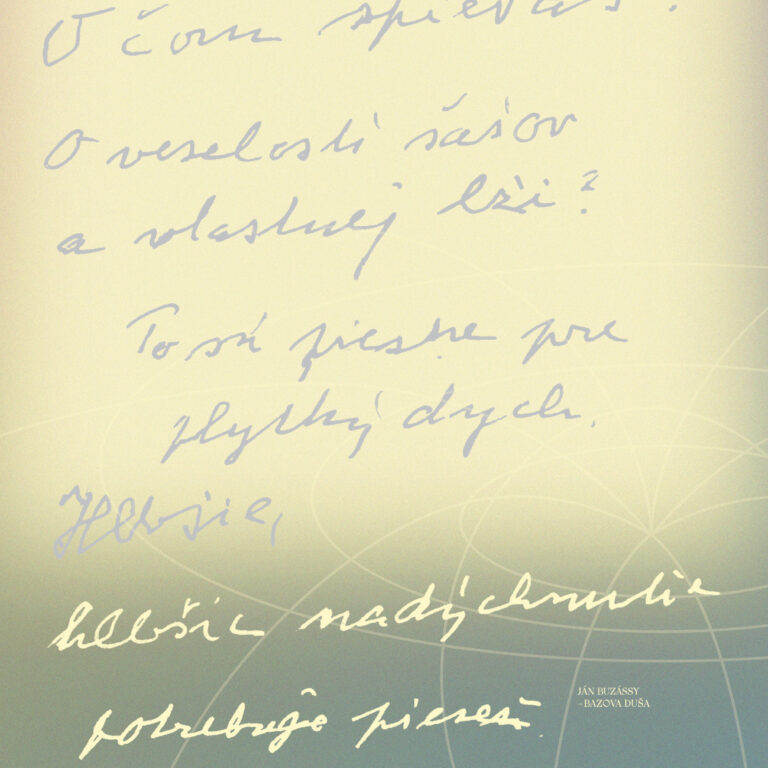 O čom spievaš?
O veselosti šašov
a vlastnej lži?
To sú piesne pre
plytký dych.
Hlbšie,
hlbšie nadýchnutie
potrebuje pieseň.
JÁN BUZÁSSY
–BAZOVA DUŠA